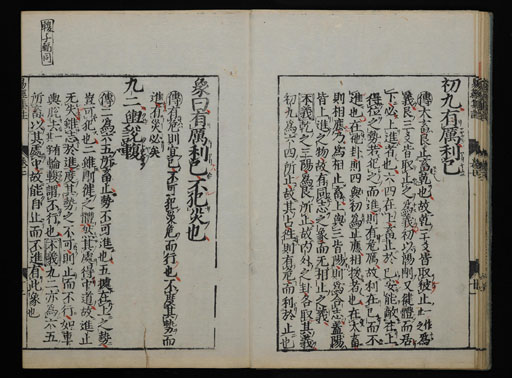 初九有厲利已
傳大畜艮止畜乾也故乾三爻皆取被止一作爲
義艮三爻皆取止之爲義初以陽剛又健體而居
下必上進者也六四在上畜止於己安能敵在上
得位之勢若犯之而進則有危厲故利在已而不
進也在他卦則四與初爲正應相援者也在大畜
則相應乃爲相止畜上與三皆陽則爲合志蓋陽
皆上進之物故有同志之象而无相止之義
本義乾之三陽爲艮所止故内外之卦各取其義
初九爲六四所止故其占往則有危而利於止也
象曰有厲利已不犯災也
傳有危則宜已不可犯災危而行也不度其勢而
進有災必矣
九二輿說輹
傳二爲六五所畜止勢不可進也五據在上之勢
豈可犯也二雖剛健之體然其處得中道故進止
无失雖志於進度其勢之不可則止而不行如車
輿脫去輪輹謂不行也本義九二亦爲六五
所畜以其處中故能自止而不進有此象也